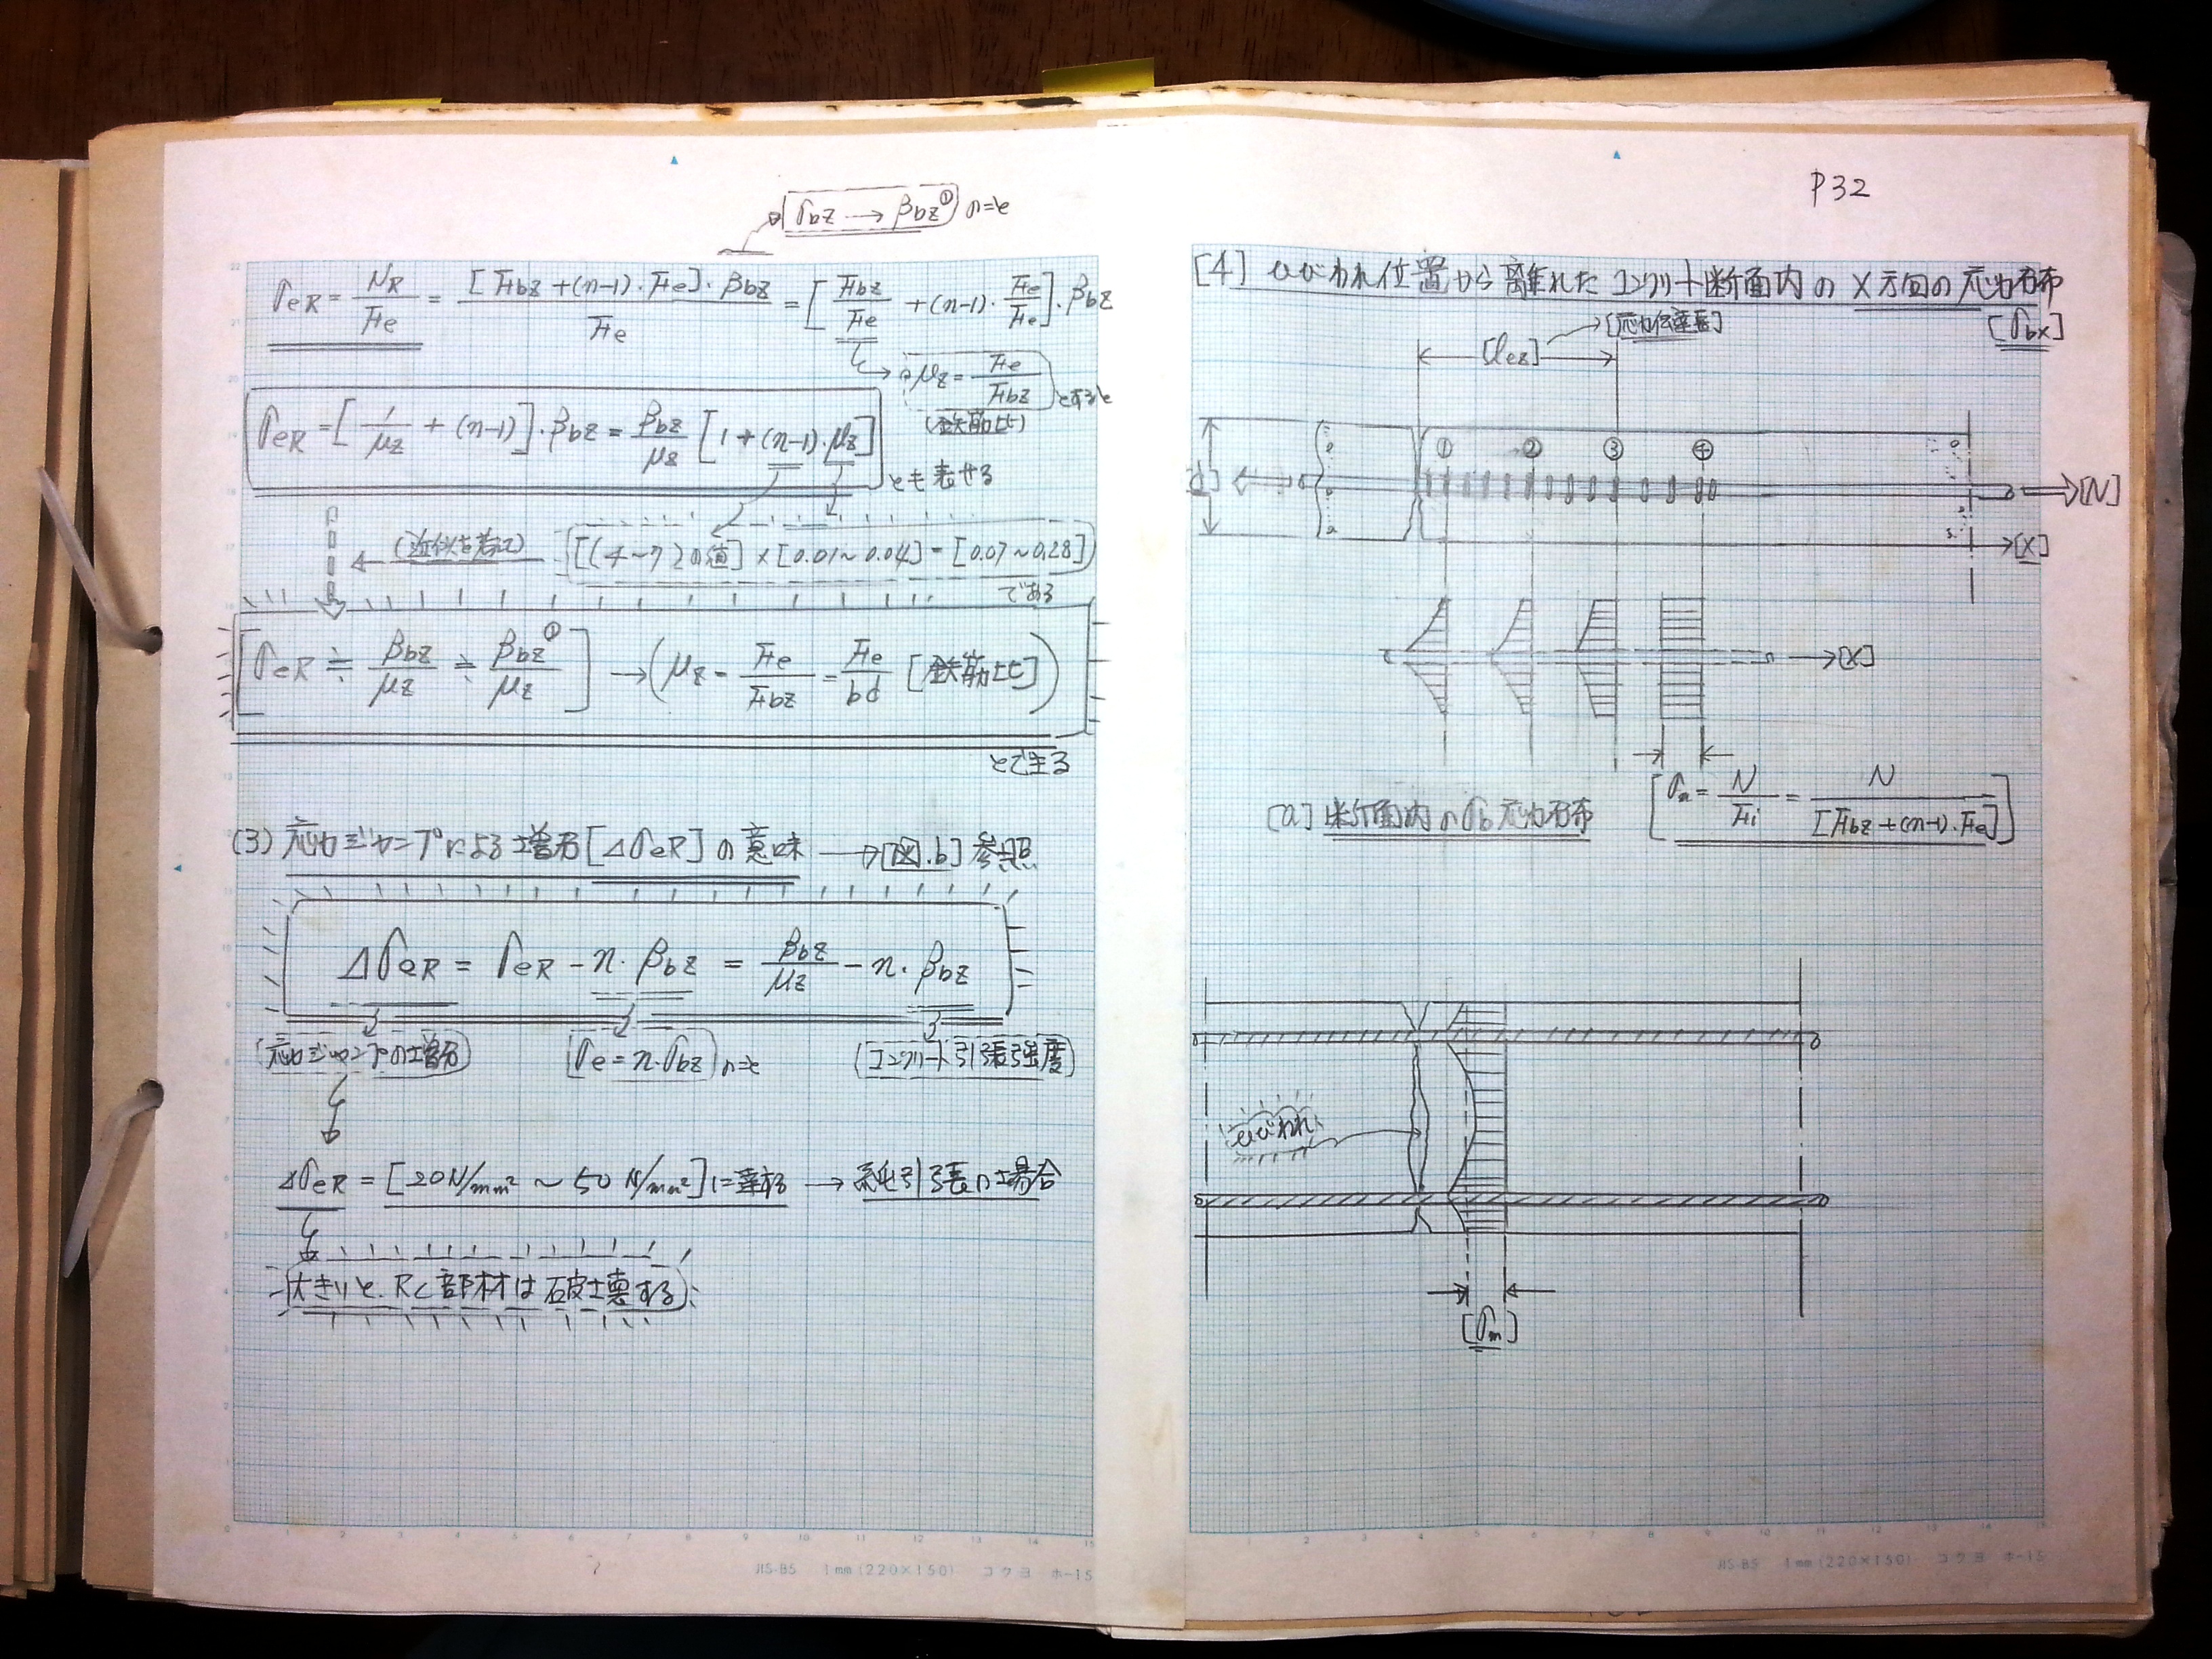 [σbz → βbz①] のとき
σeR = NR/Fe = [Fbz+(n-1)・Fe]・βbz/Fe = [Fbz/Fe + (n-1)・Fe/Fe]・βbz
μz = Fe/Fbz とすると
(鉄筋比)
σeR = [1/μz + (n-1)]・βbz = βbz/μz [1 + (n-1)・μz]
とも表せる
(近似を考えて) [(4~7)の値] × [0.01~0.04] = [0.07~0.28]
である
[σeR ≒ βbz/μz ≒ βbz①/μz] → (μz = Fe/Fbz = Fe/bd [鉄筋比])
とできる
(3) 応力ジャンプによる増分[ΔσeR]の意味 → [図.b] 参照
ΔσeR = σeR - n・βbz = βbz/μz - n・βbz
(応力ジャンプの増分) [σe = n・σbz] のとき (コンクリート引張強度)
ΔσeR = [20N/mm² ~ 50N/mm²]に達する → 純引張の場合
大きいと、RC部材は破壊する
P32
[4] ひびわれ位置から離れたコンクリート断面内のX方向の応力分布
[σbx]
[lez] [応力伝達長]
① ② ③ ④
[d] [N]
[X]
[X]
[a] 断面内のσb応力分布 [σn = N/Fi = N/[Fbz+(n-1)・Fe]]
ひびわれ
[σm]
22
21
20
19
18
17
1 2 3 4 5 6 7 8 9 10 11 12 13 14 15
JIS-B5 1mm (220×150) コクヨ ホ-15
1 2 3 4 5 6 7 8 9 10 11 12 13 14 15
JIS-B5 1mm (220×150) コクヨ ホ-15